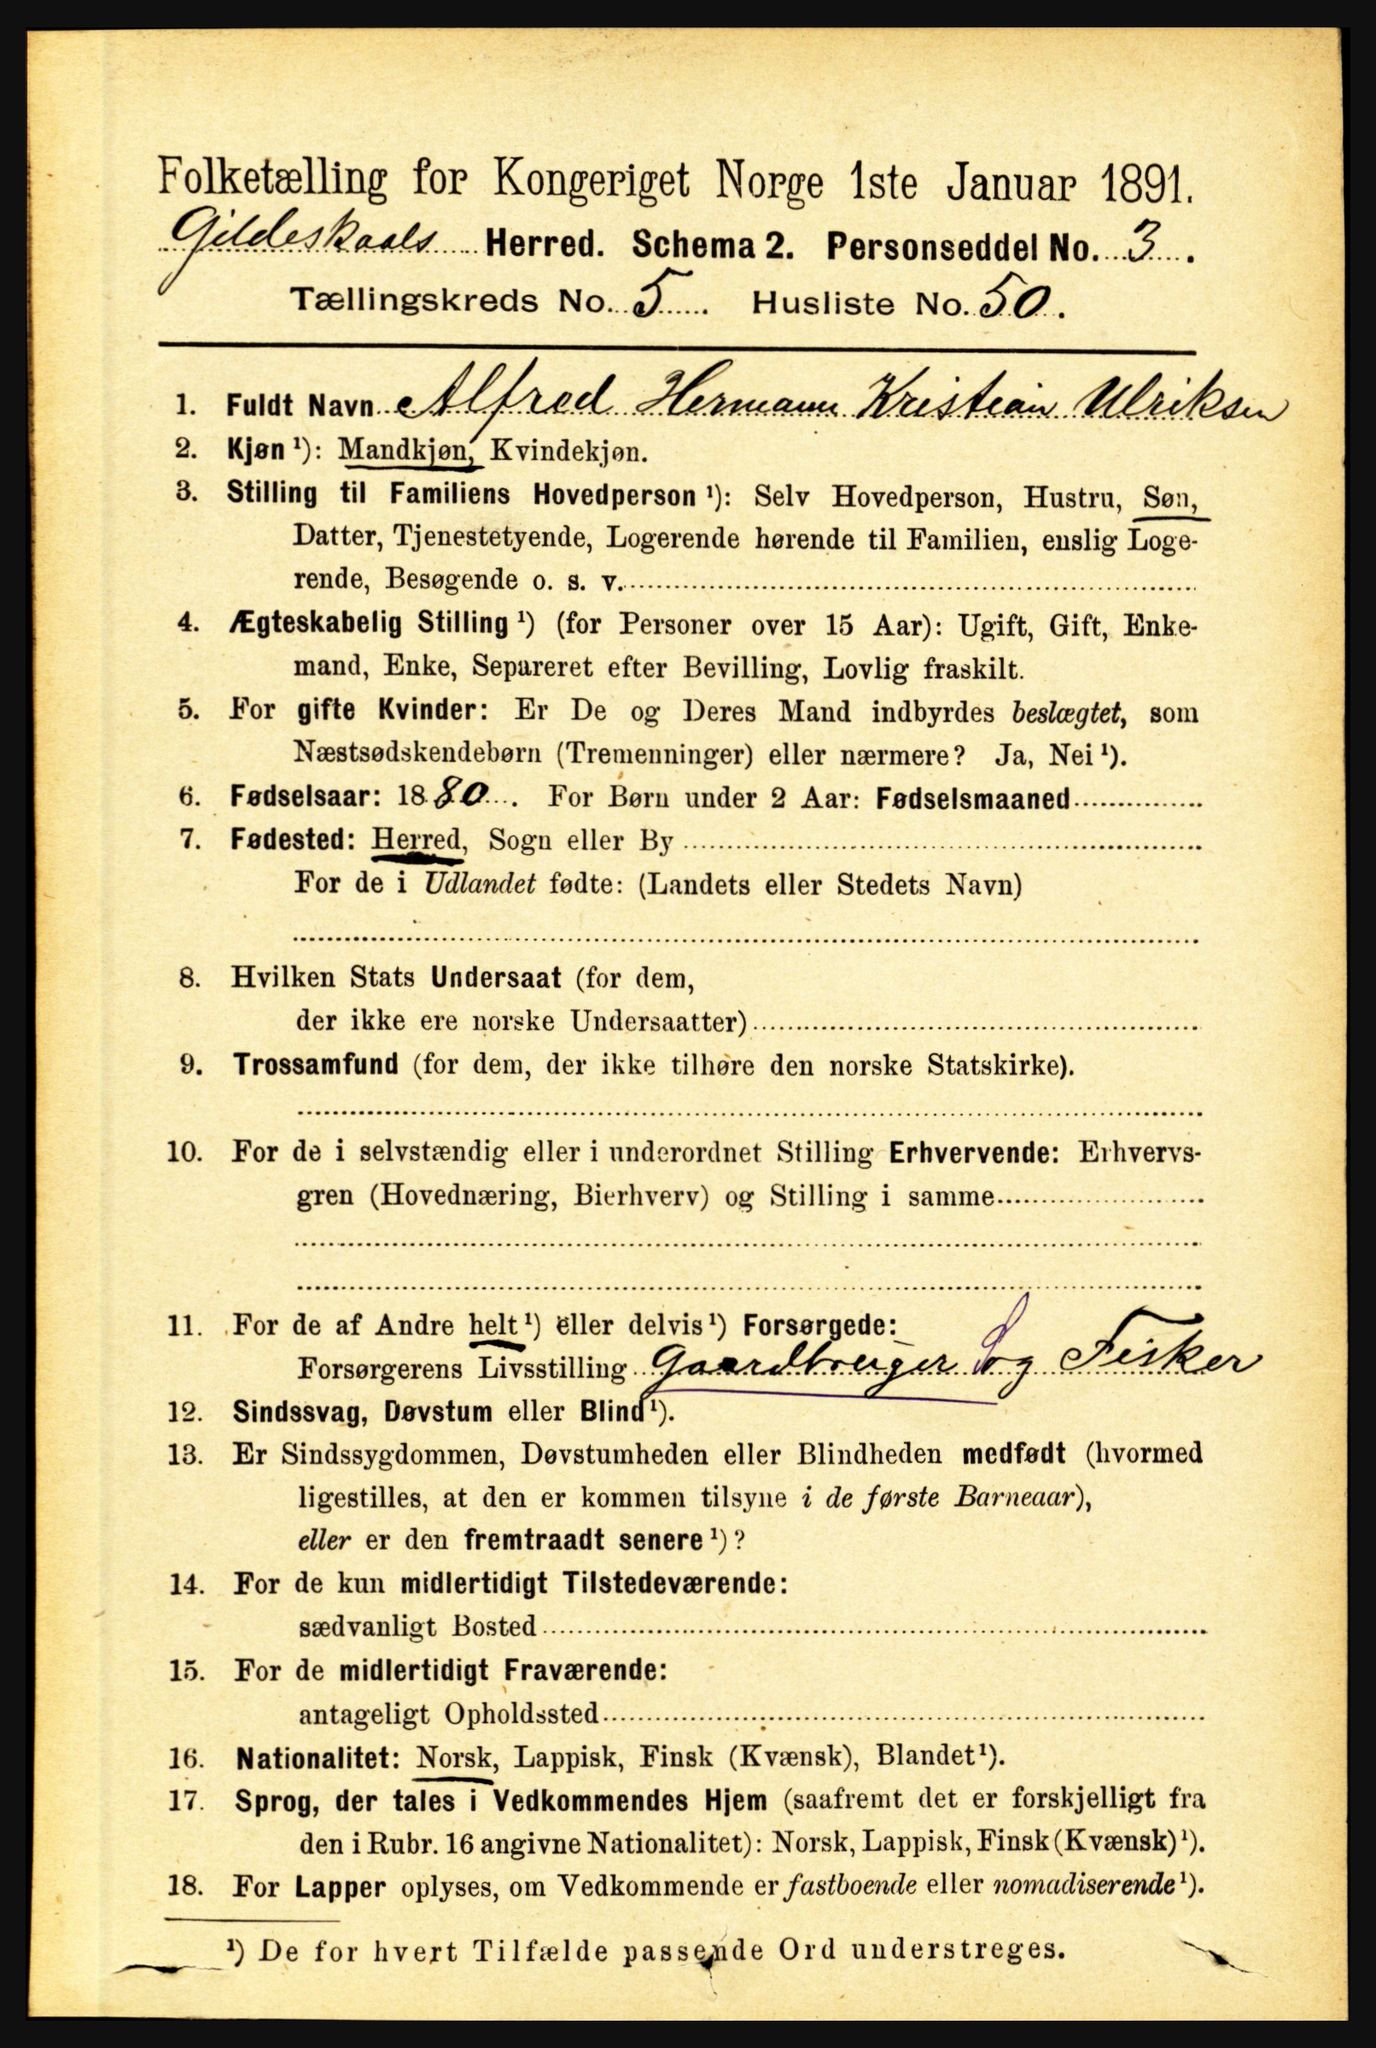 Folketælling for Kongeriget Norge 1ste Januar 1891.
Gildeskaals Herred. Schema 2. Personseddel No. 3.
Tællingskreds No. 5. Husliste No. 50.
1. Fuldt Navn Alfred Hermann Kristian Ulriksen
2. Kjøn ¹): Mandkjøn, Kvindekjøn.
3. Stilling til Familiens Hovedperson ¹): Selv Hovedperson, Hustru, Søn,
Datter, Tjenestetyende, Logerende hørende til Familien, enslig Loge-
rende, Besøgende o. s. v.
4. Ægteskabelig Stilling ¹) (for Personer over 15 Aar): Ugift, Gift, Enke-
mand, Enke, Separeret efter Bevilling, Lovlig fraskilt.
5. For gifte Kvinder: Er De og Deres Mand indbyrdes beslægtet, som
Næstsødskendebørn (Tremenninger) eller nærmere? Ja, Nei ¹).
6. Fødselsaar: 1880. For Børn under 2 Aar: Fødselsmaaned
7. Fødested: Herred, Sogn eller By
For de i Udlandet fødte: (Landets eller Stedets Navn)
8. Hvilken Stats Undersaat (for dem,
der ikke ere norske Undersaatter)
9. Trossamfund (for dem, der ikke tilhøre den norske Statskirke).
10. For de i selvstændig eller i underordnet Stilling Erhvervende: Erhvervs-
gren (Hovednæring, Bierhverv) og Stilling i samme
11. For de af Andre helt ¹) eller delvis ¹) Forsørgede:
Forsørgerens Livsstilling Gaardbruger og Fisker
12. Sindssvag, Døvstum eller Blind ¹).
13. Er Sindssygdommen, Døvstumheden eller Blindheden medfødt (hvormed
ligestilles, at den er kommen tilsyne i de første Barneaar),
eller er den fremtraadt senere ¹)?
14. For de kun midlertidigt Tilstedeværende:
sædvanligt Bosted
15. For de midlertidigt Fraværende:
antageligt Opholdssted
16. Nationalitet: Norsk, Lappisk, Finsk (Kvænsk), Blandet ¹).
17. Sprog, der tales i Vedkommendes Hjem (saafremt det er forskjelligt fra
den i Rubr. 16 angivne Nationalitet): Norsk, Lappisk, Finsk (Kvænsk) ¹).
18. For Lapper oplyses, om Vedkommende er fastboende eller nomadiserende ¹).
¹) De for hvert Tilfælde passende Ord understreges.